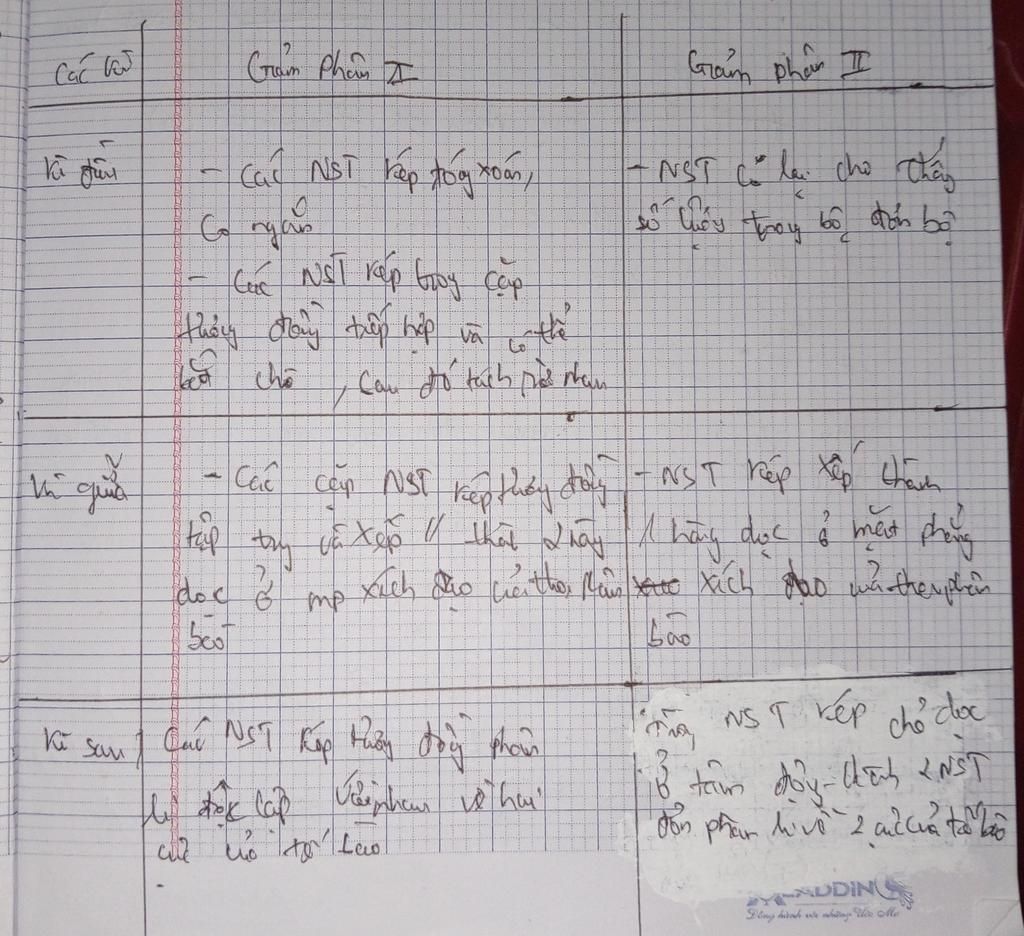 Các kì
Giảm phân I
Giảm phân II
Kì đầu
- Các NST kép đóng xoắn,
co ngắn
- Các NST kép trong cặp
tương đồng tiếp hợp và có thể
chéo, sau đó tách rời nhau
- NST co lại cho thấy
số lượng trong bộ đơn bội
Kì giữa
- Các cặp NST kép tương đồng
tập trung và xếp // thành 2 hàng
dọc ở mp xích đạo của thoi phân
bào
- NST kép xếp thành
1 hàng dọc ở mặt phẳng
xích đạo của thoi phân
bào
Kì sau
Các NST kép tương đồng phân
li độc lập với nhau về hai
cực của tế bào
Từng NST kép chẻ dọc
ở tâm động thành 2 NST
đơn phân li về 2 cực của tế bào
Đồng hành với những Ước Mơ